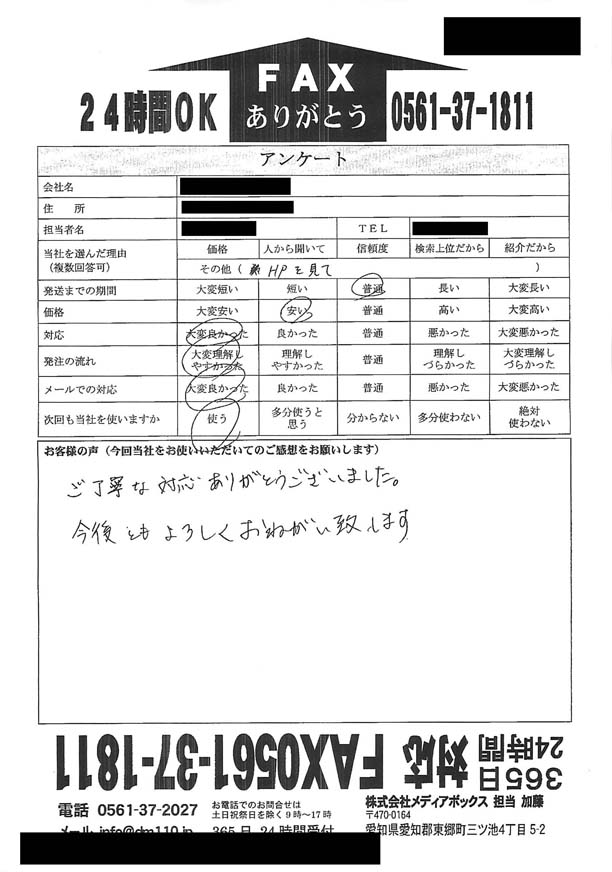 FAX
24時間OK ありがとう 0561-37-1811
アンケート
会社名
住 所
担当者名 TEL
当社を選んだ理由（複数回答可） 価格 人から聞いて 信頼度 検索上位だから 紹介だから
その他（ HPを見て ）
発送までの期間 大変短い 短い 普通 長い 大変長い
価格 大変安い 安い 普通 高い 大変高い
対応 大変良かった 良かった 普通 悪かった 大変悪かった
発注の流れ 大変理解しやすかった 理解しやすかった 普通 理解しづらかった 大変理解しづらかった
メールでの対応 大変良かった 良かった 普通 悪かった 大変悪かった
次回も当社を使いますか 使う 多分使うと思う 分からない 多分使わない 絶対使わない
お客様の声（今回当社をお使いいただいてのご感想をお願いします）
ご丁寧な対応ありがとうございました。
今後ともよろしくおねがい致します
365日24時間対応 FAX0561-37-1811
電話 0561-37-2027 お電話でのお問合せは 株式会社メディアボックス 担当 加藤
土日祝祭日を除く9時～17時 〒470-0164
メール info@dm110.jp 365日 24時間受付 愛知県愛知郡東郷町三ツ池4丁目5-2